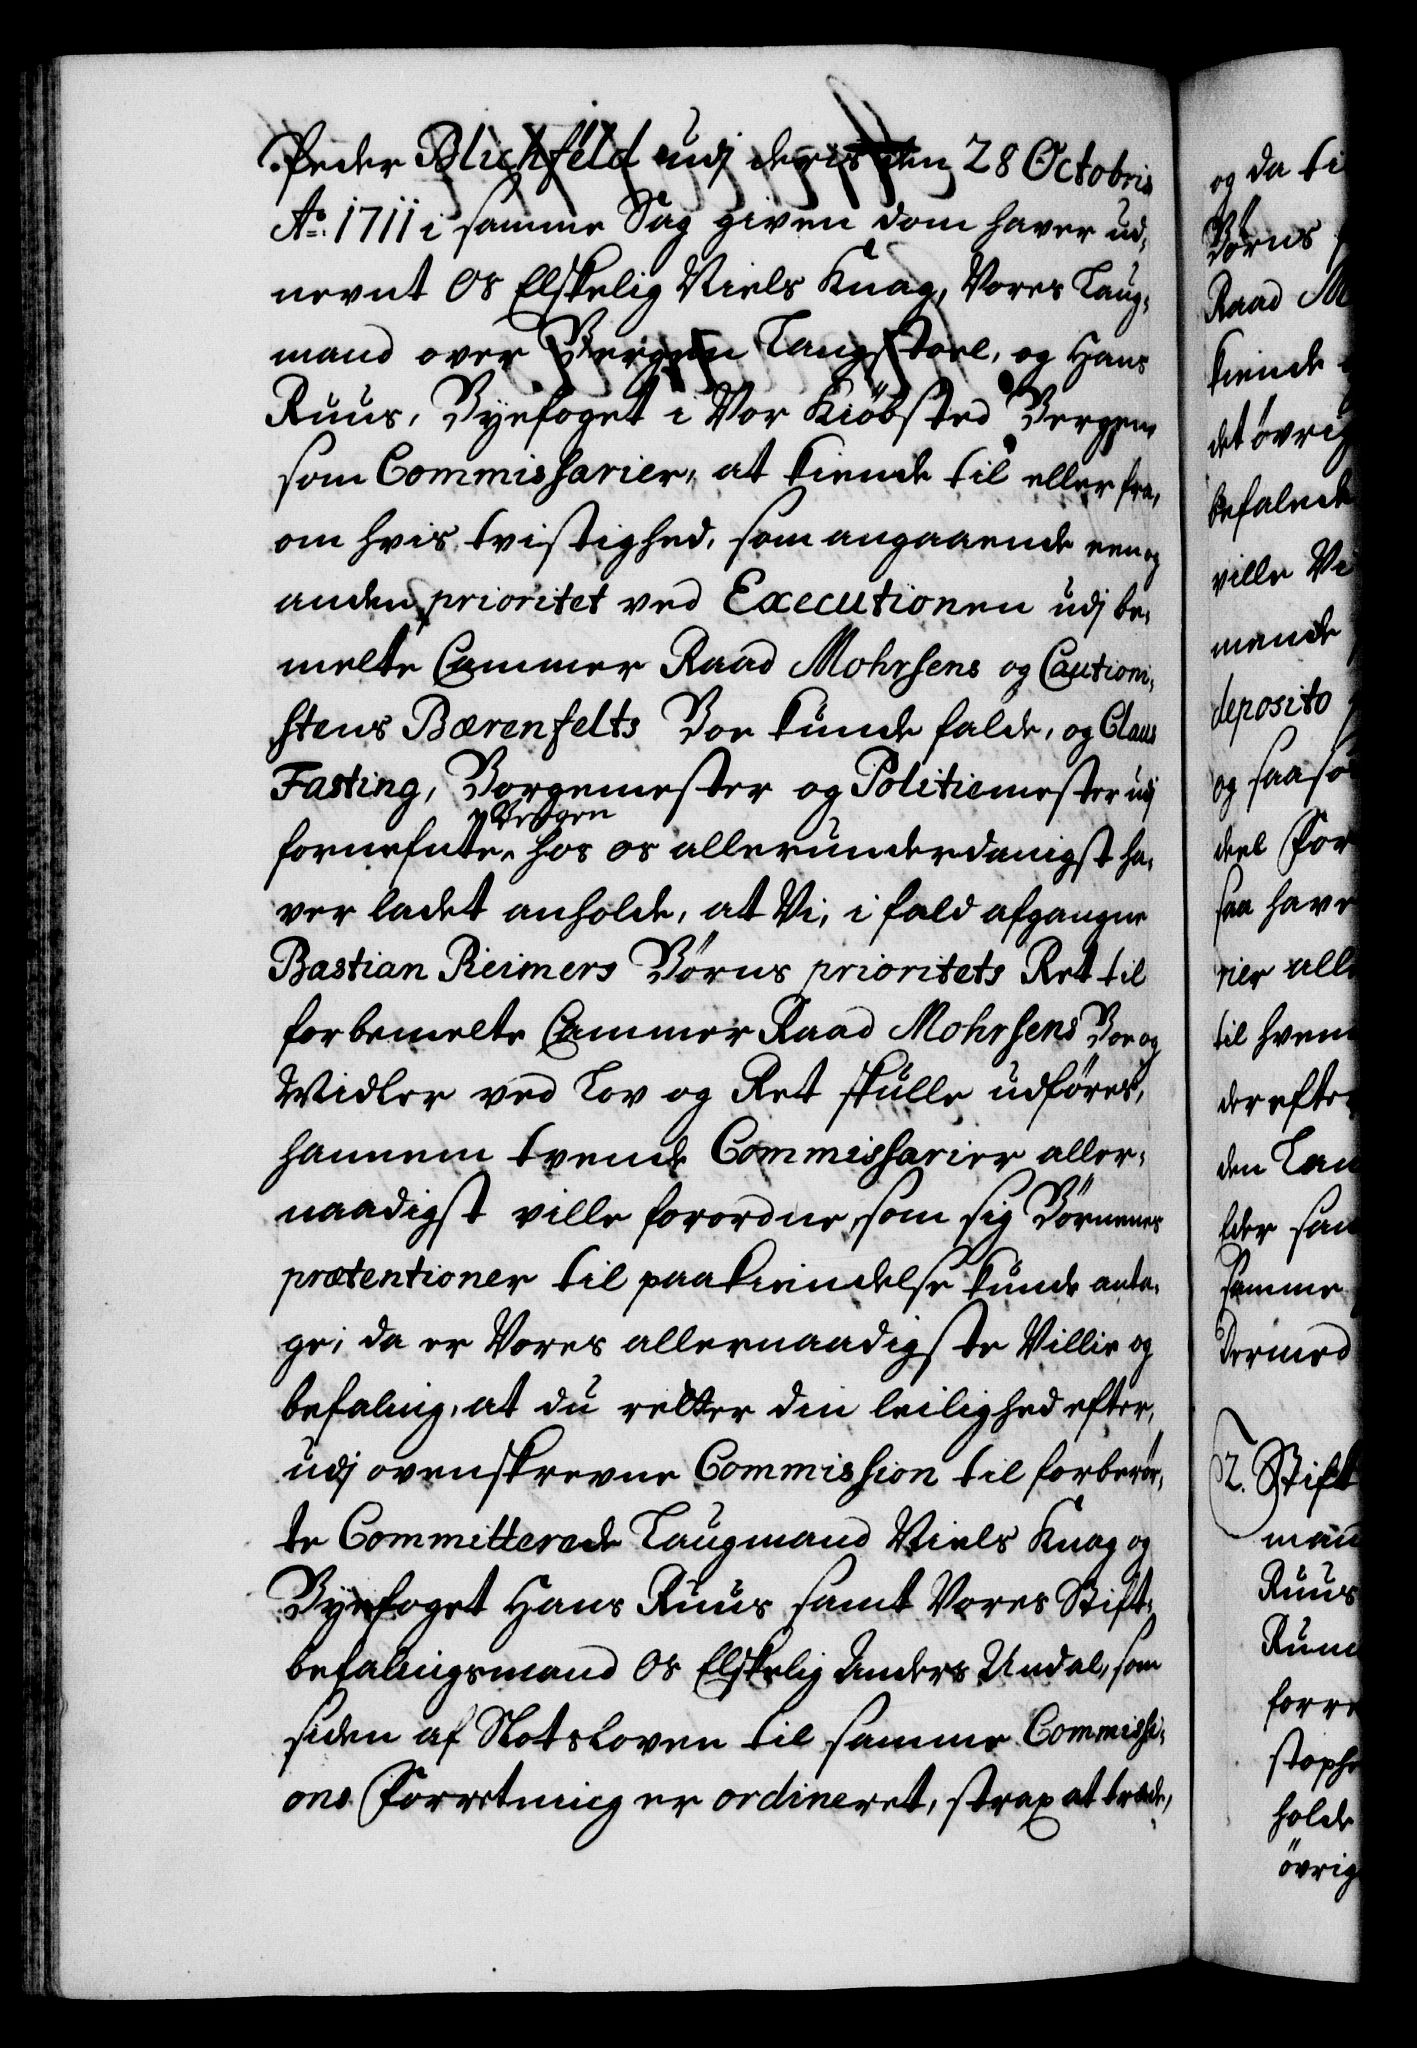 Peder Blichfeld udj deris den 28 Octobris
Ao. 1711 i samme Sag given dom haver ud-
nevnt Os Elskelig Niels Knag, Vores Laug-
mand over Bergens Laugstoel, og Hans
Ruus, Byefoget i Vor Kiöbsted Bergen
som Commissarier, at kiende til eller fra,
om hvis tvistighed, som angaaende een og
anden prioritet ved Executionen udj be-
melte Cammer Raad Mohrsens og Cautioni-
stens Bærenfelts Boe kunde falde, og Claus
Fasting, Borgemester og Politiemester udj
fornefnte Bergen hos os allerunderdanigst ha-
ver ladet anholde, at Vi, i fald afgangne
Bastian Reimers Börns prioritets Ret til
forbemelte Cammer Raad Mohrsens Boe og
Midler ved Lov og Ret skulle udföres,
hannem tvende Commissarier aller-
naadigst ville forordne, som sig Börnenes
prætentioner til paakiendelse kunde anta-
ge; da er Vores allernaadigste Villie og
befaling, at du retter din leilighed efter,
udj ovenskrevne Commission til forberör-
te Committerede Laugmand Niels Knag og
Byefoget Hans Ruus samt Vores Stift-
befalingsmand Os Elskelig Anders Undal, som
siden af Slotsloven til samme Commissi-
ons Forretning er ordineret, strax at træde,
og da ti
Börns
Raad M
kiende
det övrig
befalende
ville Vi
mende
deposito
og saasö
deel For
saa have
rier alle
til hvem
der efter
den Lau
eller sam
samme
Dermed
2. Stift
man
Ruus
forre
stoph
holde
övrig